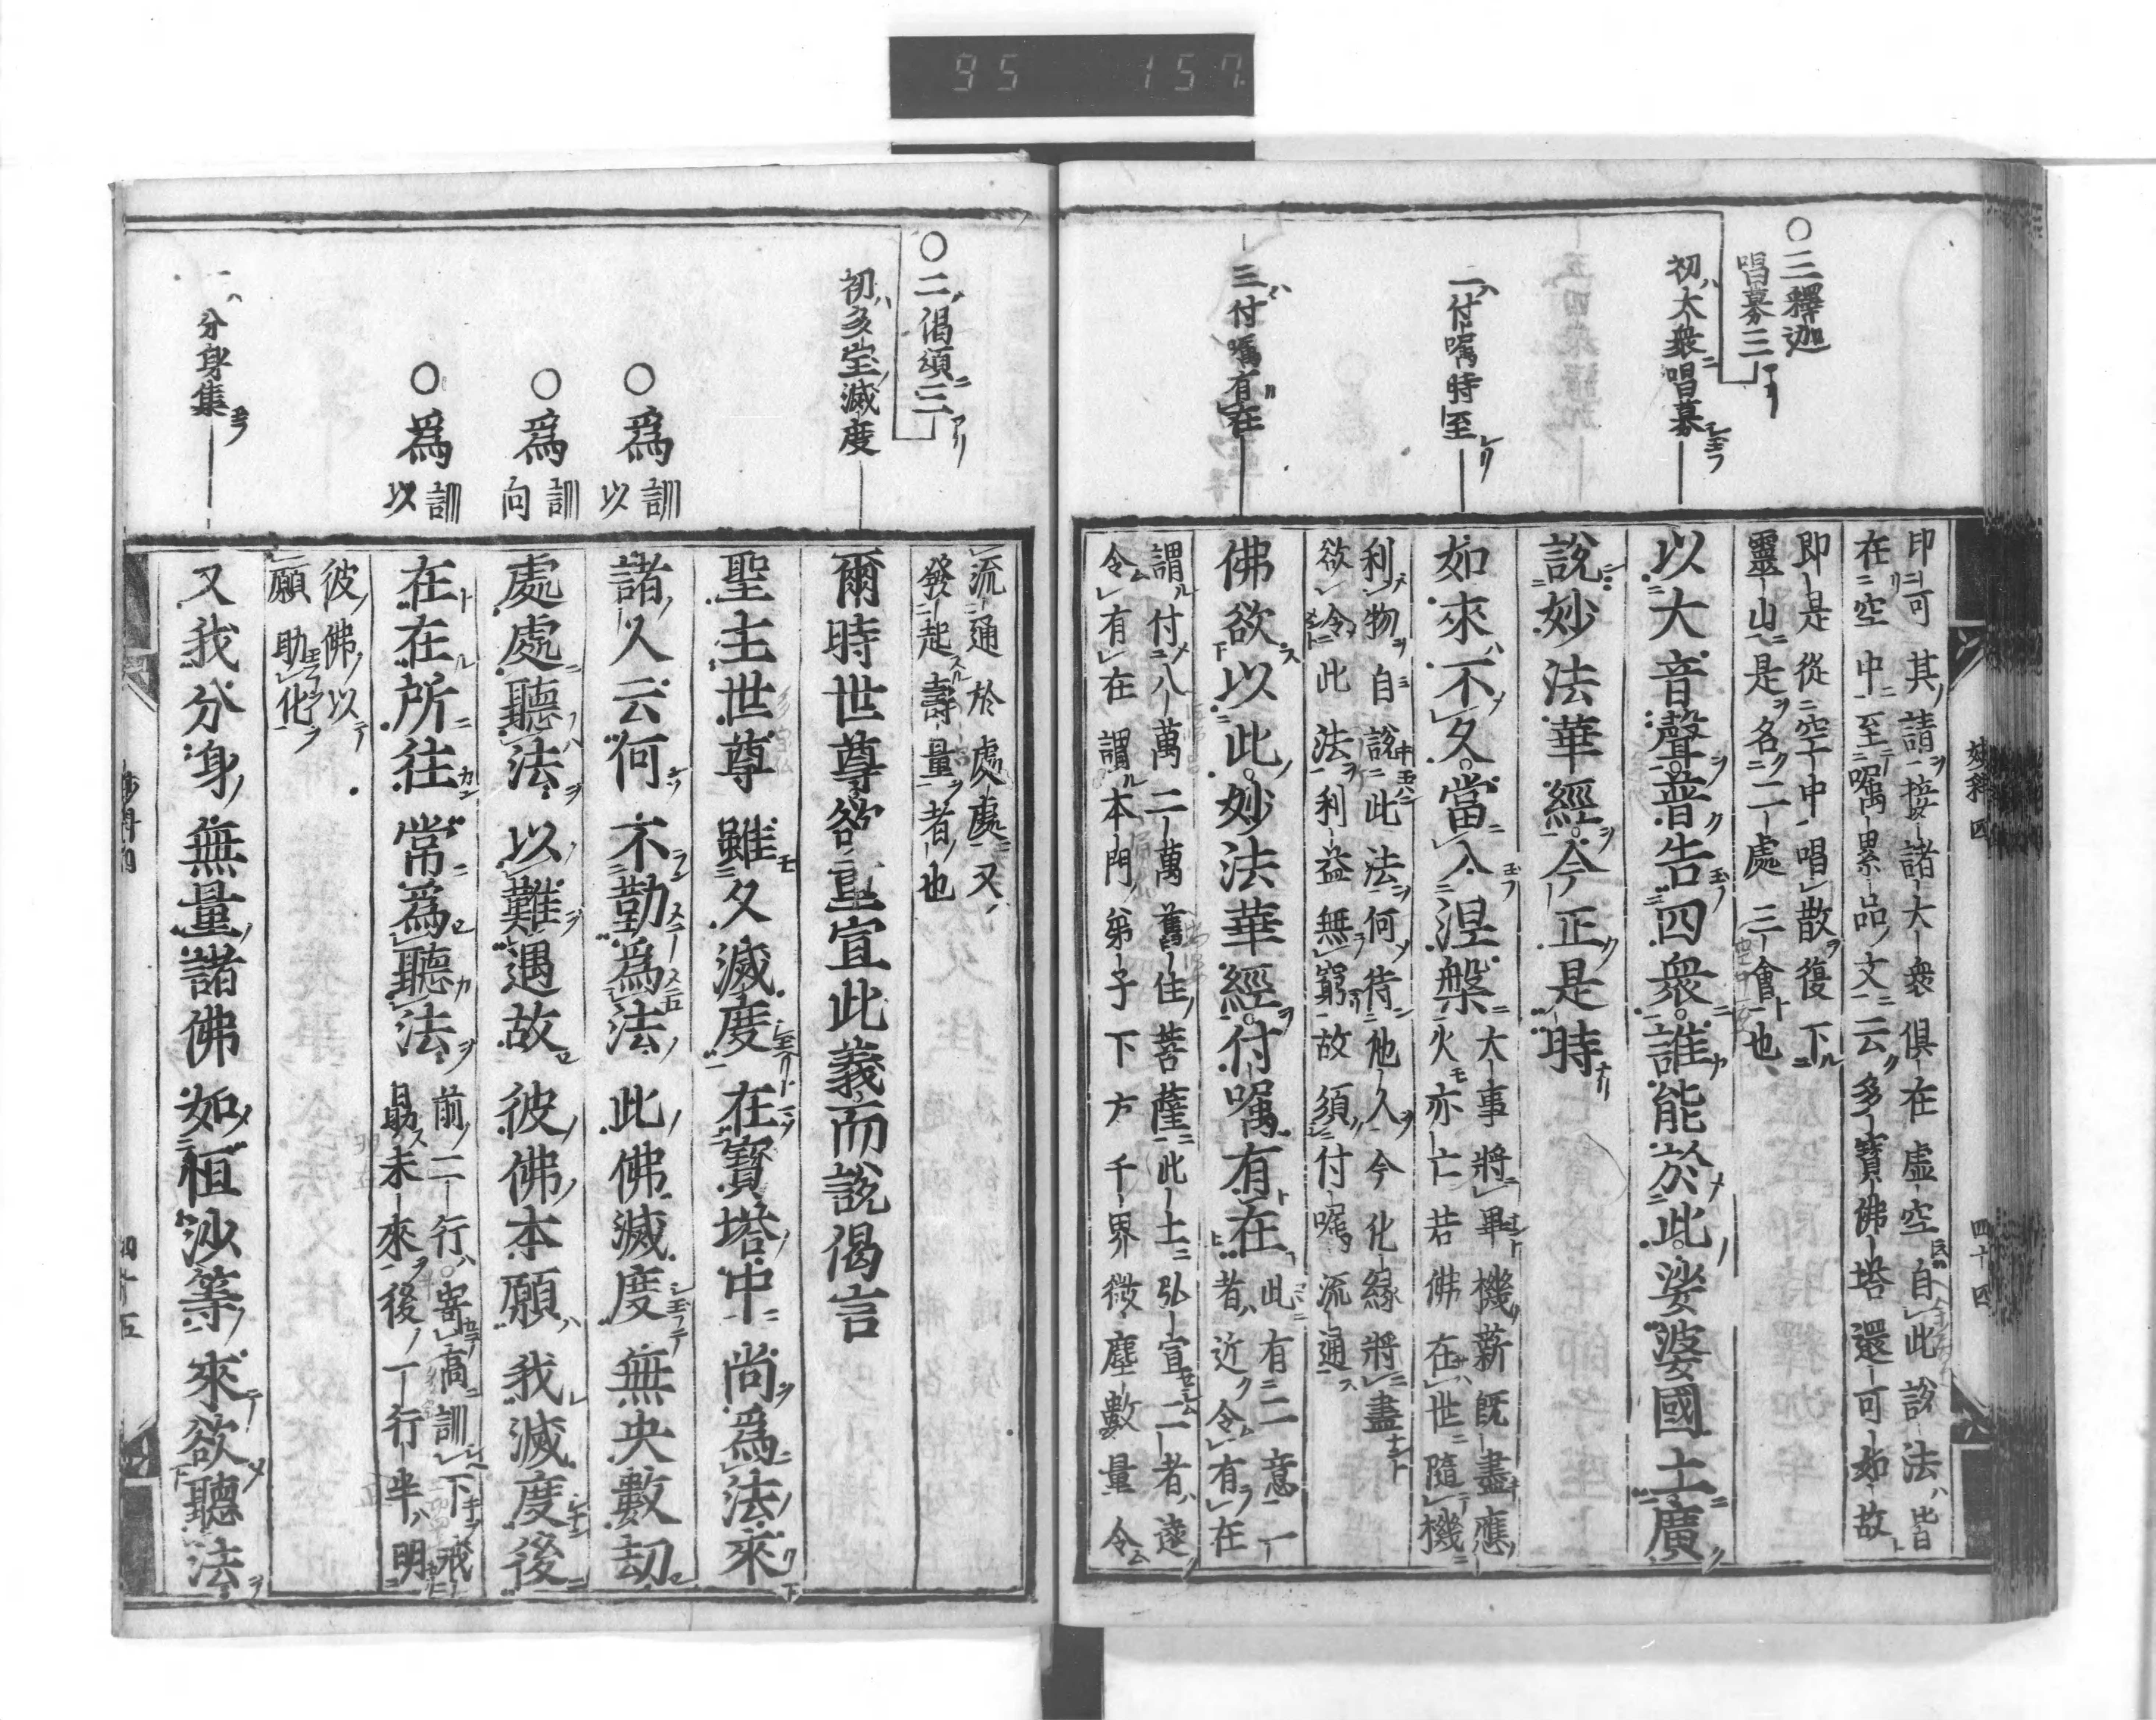 95 157
○三釋迦
唱募三
初大衆唱募
二付嘱時至
三付嘱有在
印可其請接諸大衆俱在虚空自此説法皆
在空中至嘱累品文云多寶佛塔還可如故
即是從空中唱散復下
靈山是名二處三會也
以大音聲普告四衆誰能於此娑婆國土廣
説妙法華經今正是時
如來不久當入涅槃
大事將畢機薪既盡應
火亦亡若佛在世隨機
利物自説此法何待他人今化縁將盡
欲令此法利益無窮故須付嘱流通
佛欲以此妙法華經付嘱有在
此有二意一
者近令有在
謂付八萬二萬舊住菩薩此土弘宣二者遠
令有在謂本門弟子下方千界微塵數量令
妙科四
四十四
○二偈頌三
初多宝滅度
○爲
訓
以
○爲
訓
向
○爲
訓
以
二分身集
流通於處處又
發起壽量者也
爾時世尊欲重宣此義而説偈言
聖主世尊 雖久滅度 在寳塔中 尚爲法來
諸人云何 不勤爲法 此佛滅度 無央數劫
處處聽法 以難遇故 彼佛本願 我滅度後
在在所往 常爲聽法
前二行寄高訓下戒
勗未來後一行半明
彼佛以
願助化
又我分身 無量諸佛 如恒沙等 來欲聽法